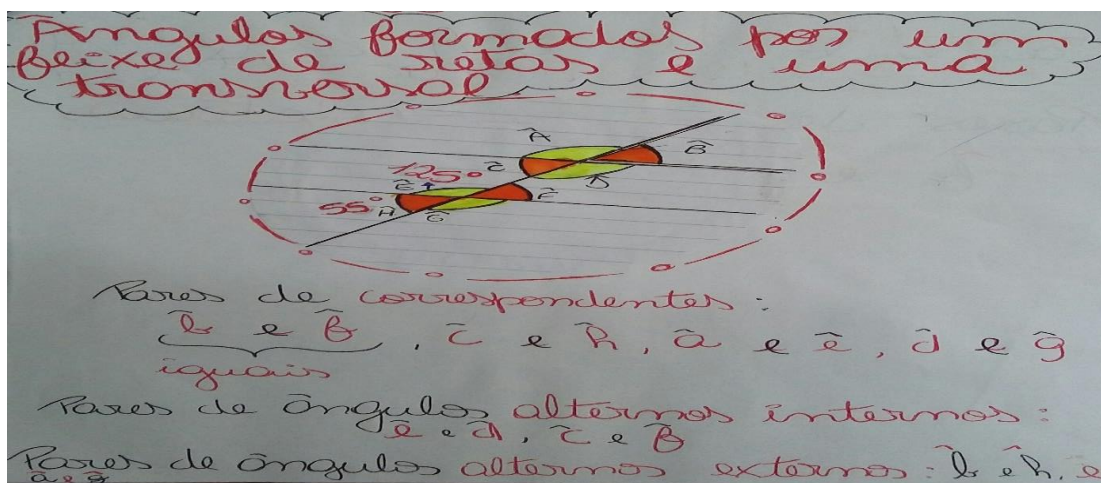 Ângulos formados por um
feixe de retas e uma
transversal
Â
B̂
Ĉ
D̂
125°
Ê
F̂
55°
Ĥ
Ĝ
Pares de correspondentes:
b̂ e f̂, ĉ e ĥ, â e ê, d̂ e ĝ
iguais
Pares de ângulos alternos internos:
ê e d̂, ĉ e f̂
Pares de ângulos alternos externos: b̂ e ĥ, e
â e ĝ